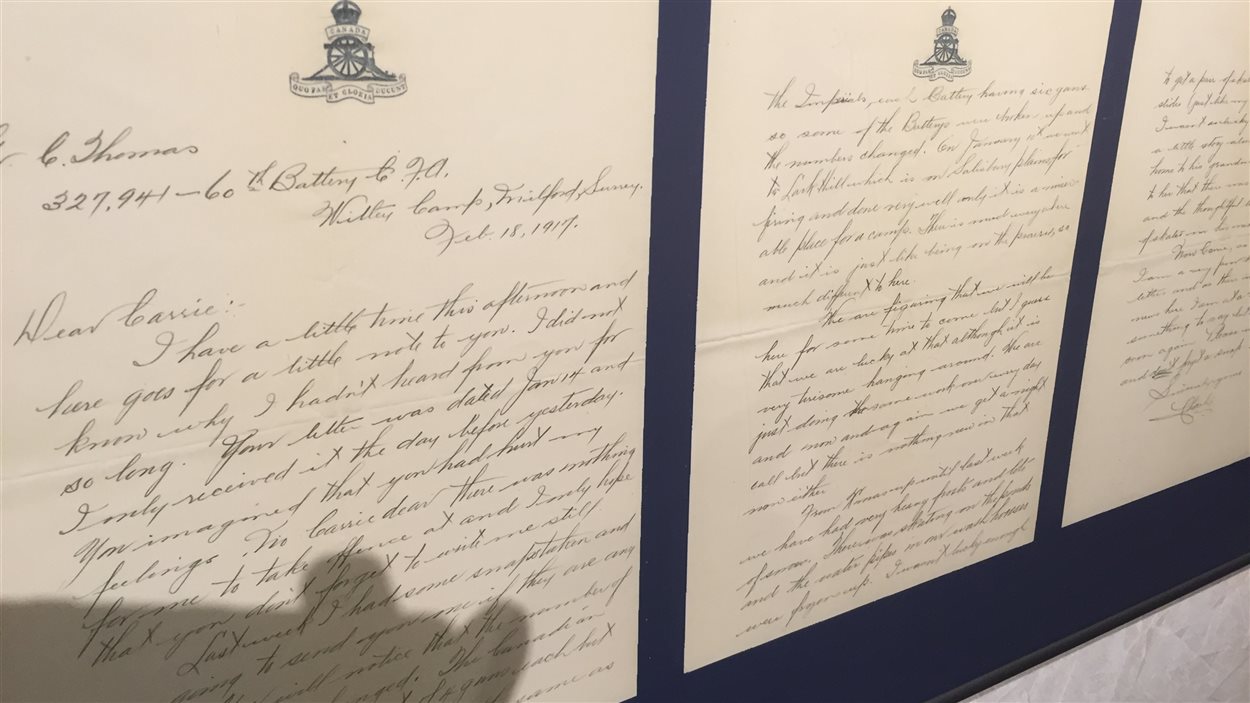 CANADA
QUO FAS ET GLORIA DUCUNT
C. Thomas
327,941-60th Battery C.F.A.
Witley Camp, Milford, Surrey.
Feb. 18, 1917.
Dear Carrie:-
I have a little time this afternoon and
here goes for a little note to you. I did not
know why I hadn't heard from you for
so long. Your letter was dated Jan 14 and
I only received it the day before yesterday.
You imagined that you had hurt my
feelings. No Carrie dear there was nothing
for me to take offence at and I only hope
that you don't forget to write me still.
Last week I had some snaps taken and
going to send you one if they are any
will notice that the number of
changed. The Canadian
of 4 guns each but
same as
CANADA
the Imperials, each Battery having six guns
so some of the Batterys were broken up and
the numbers changed. On January we went
to Lark Hill which is on Salisbury plains for
firing and done very well only it is a miser-
able place for a camp. There is mud everywhere
and it is just like being on the praries, so
much different to here.
We are figuring that we will be
here for some time to come but I guess
that we are lucky at that although it is
very tiresome hanging around. We are
just doing the same work over every day
and now and again we get a night
call but there is nothing new in that
now either.
From Xmas up until last week
we have had very heavy frosts and lots
of snow. There was skating on the ponds
and the water pipes in our wash houses
were frozen up. I wasn't lucky enough
to get a pair of skates
slides just like my
I wasn't so lucky
a little story
home to his
to her that there was
and the thoughtful
of skates in
Now Carrie, as
I am a very poor
letter and as there is
new here I am at a
something to say but
soon again.
and don't get a snap
Sincerely yours
Clark